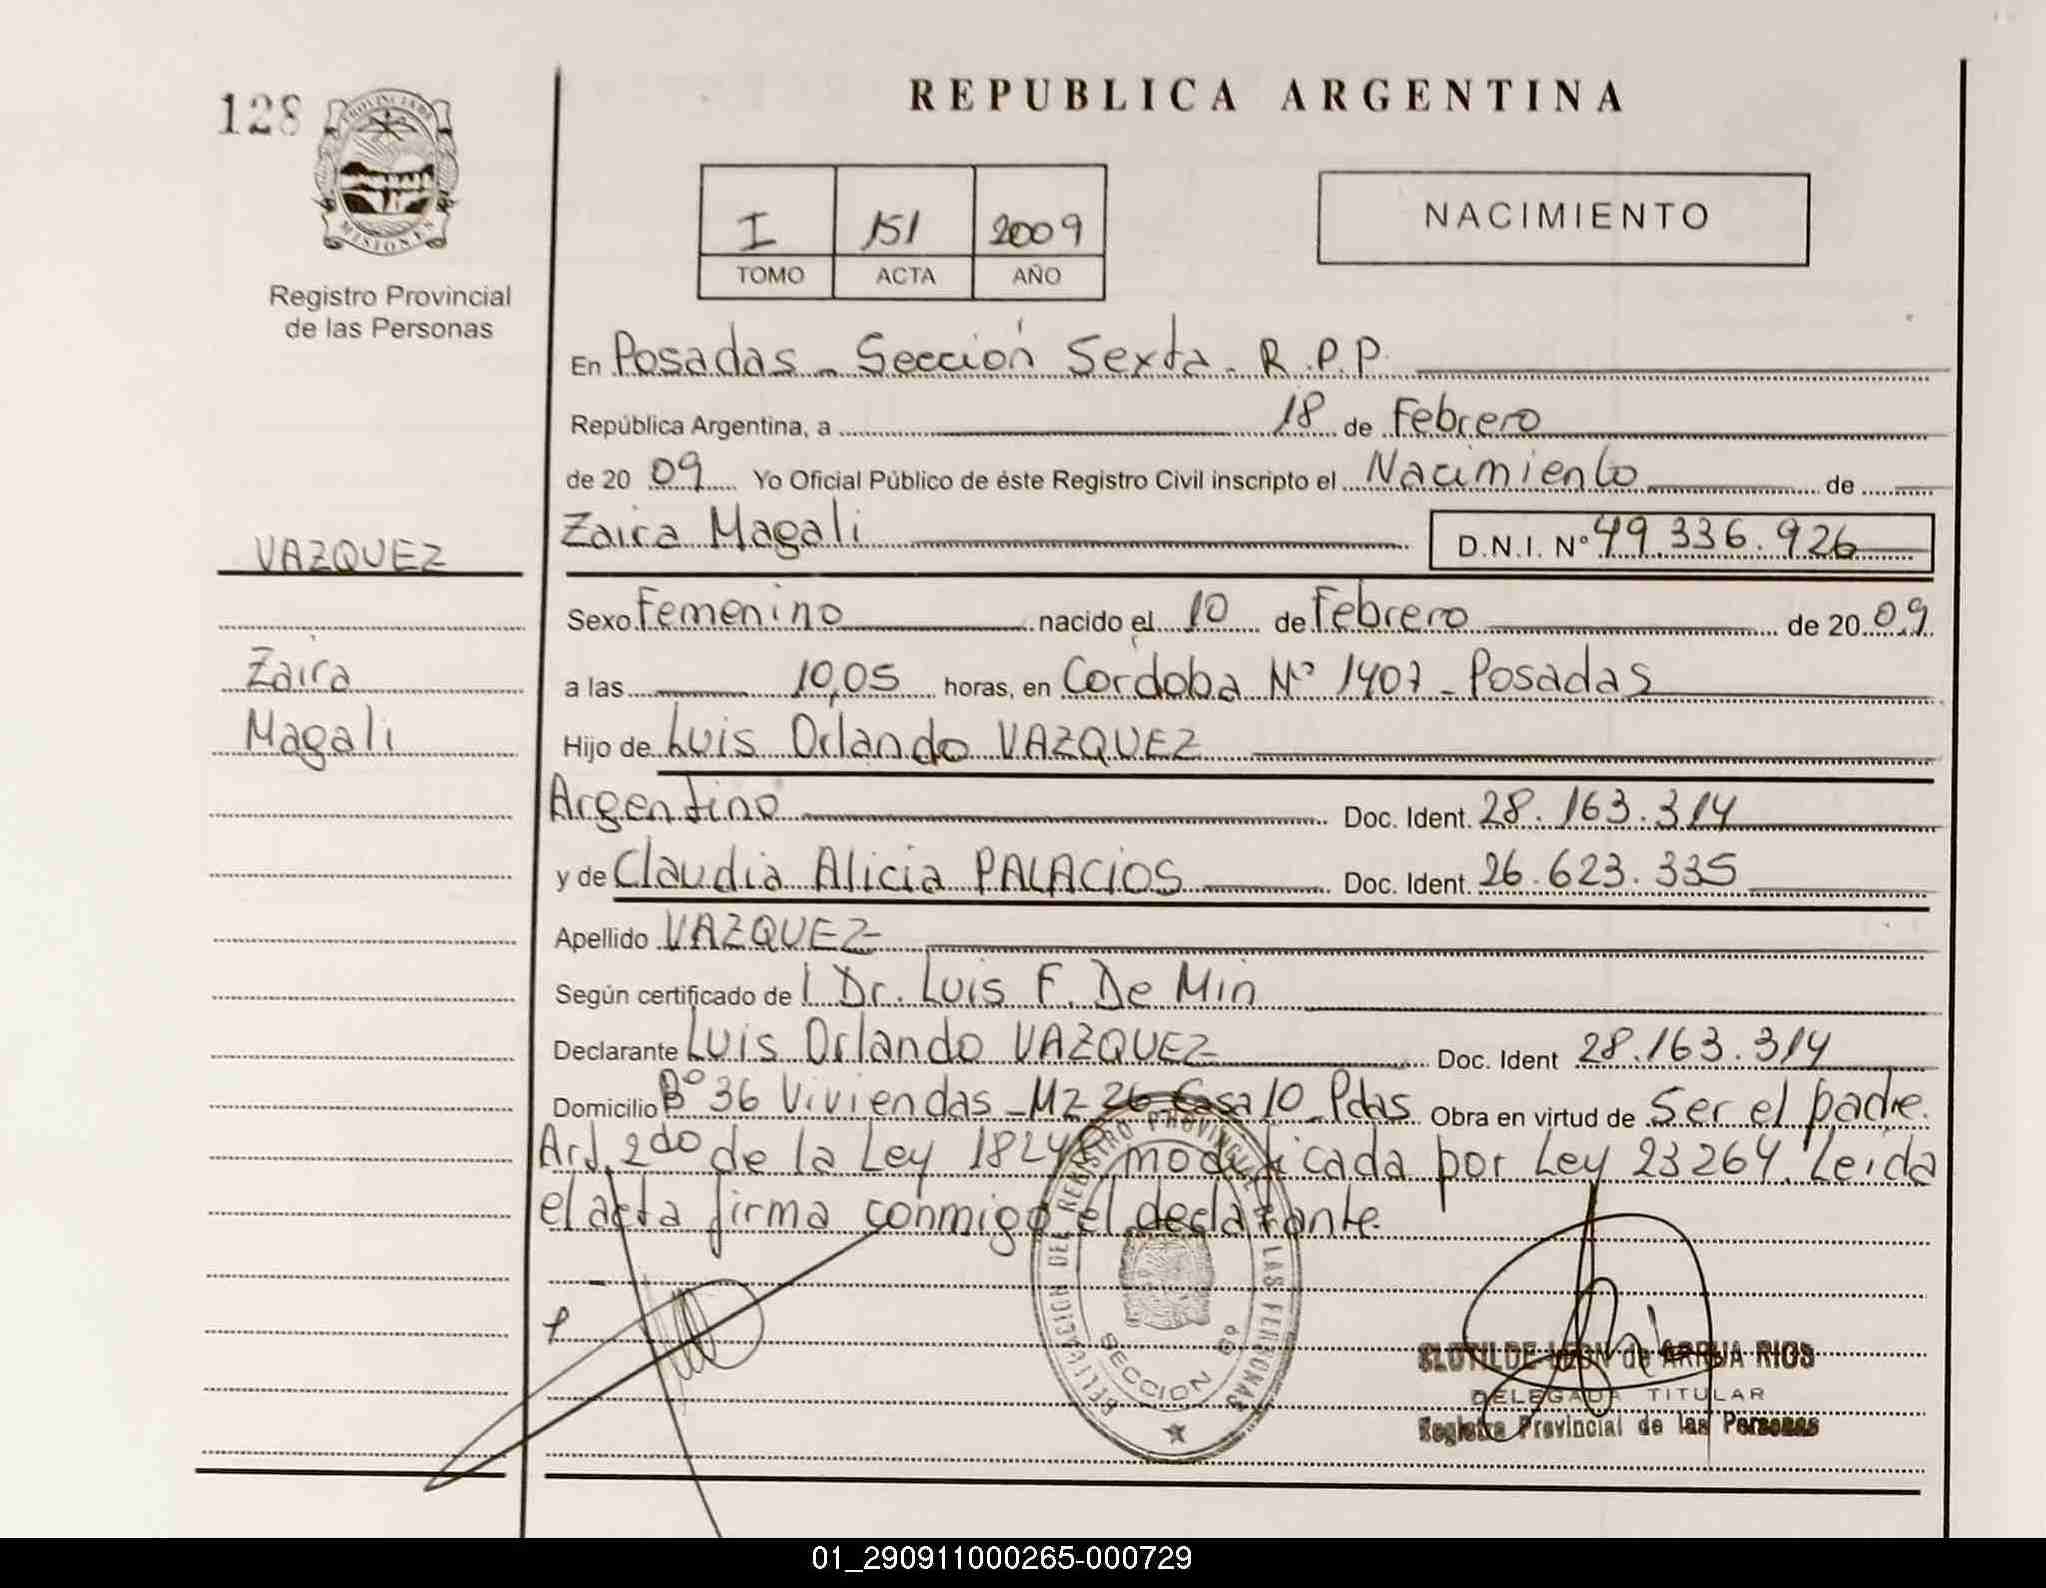 128
PROVINCIA DE
MISIONES
Registro Provincial
de las Personas
REPUBLICA ARGENTINA
I 151 2009
TOMO ACTA AÑO
NACIMIENTO
En Posadas - Sección Sexta - R.P.P.
República Argentina, a 18 de Febrero
de 2009 Yo Oficial Público de éste Registro Civil inscripto el Nacimiento de
Zaira Magali D.N.I. Nº 49.336.926
VAZQUEZ
Zaira
Magali
Sexo Femenino nacido el 10 de Febrero de 2009
a las 10,05 horas, en Córdoba Nº 1407 - Posadas
Hijo de Luis Orlando VAZQUEZ
Argentino Doc. Ident. 28.163.314
y de Claudia Alicia PALACIOS Doc. Ident. 26.623.335
Apellido VAZQUEZ
Según certificado de l Dr. Luis F. De Min
Declarante Luis Orlando VAZQUEZ Doc. Ident 28.163.314
Domicilio Bº 36 Viviendas - Mz 26 Casa 10 - Pdas Obra en virtud de Ser el padre.
Art. 2do de la Ley 18248 modificada por Ley 23264. Leida
el acta firma conmigo el declarante.
DEL REGISTRO PROVINCIAL DE LAS PERSONAS
SECCION 6º
CLOTILDE LEON de ARRUA RIOS
DELEGADA TITULAR
Registro Provincial de las Personas
01_290911000265-000729